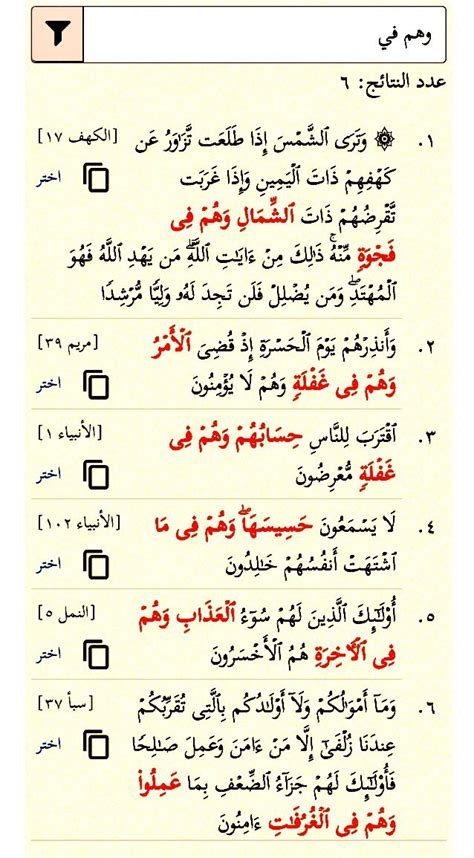 وهم في
عدد النتائج: ٦
١. ۞ وَتَرَى ٱلشَّمْسَ إِذَا طَلَعَت تَّزَٰوَرُ عَن [الكهف ١٧]
كَهْفِهِمْ ذَاتَ ٱلْيَمِينِ وَإِذَا غَرَبَت اختر
تَّقْرِضُهُمْ ذَاتَ ٱلشِّمَالِ وَهُمْ فِى
فَجْوَةٍ مِّنْهُ ۚ ذَٰلِكَ مِنْ ءَايَٰتِ ٱللَّهِ ۗ مَن يَهْدِ ٱللَّهُ فَهُوَ
ٱلْمُهْتَدِ ۖ وَمَن يُضْلِلْ فَلَن تَجِدَ لَهُۥ وَلِيًّا مُّرْشِدًا
٢. وَأَنذِرْهُمْ يَوْمَ ٱلْحَسْرَةِ إِذْ قُضِىَ ٱلْأَمْرُ [مريم ٣٩]
وَهُمْ فِى غَفْلَةٍ وَهُمْ لَا يُؤْمِنُونَ اختر
٣. ٱقْتَرَبَ لِلنَّاسِ حِسَابُهُمْ وَهُمْ فِى [الأنبياء ١]
غَفْلَةٍ مُّعْرِضُونَ اختر
٤. لَا يَسْمَعُونَ حَسِيسَهَا ۖ وَهُمْ فِى مَا [الأنبياء ١٠٢]
ٱشْتَهَتْ أَنفُسُهُمْ خَٰلِدُونَ اختر
٥. أُو۟لَٰٓئِكَ ٱلَّذِينَ لَهُمْ سُوٓءُ ٱلْعَذَابِ وَهُمْ [النمل ٥]
فِى ٱلْءَاخِرَةِ هُمُ ٱلْأَخْسَرُونَ اختر
٦. وَمَآ أَمْوَٰلُكُمْ وَلَآ أَوْلَٰدُكُم بِٱلَّتِى تُقَرِّبُكُمْ [سبأ ٣٧]
عِندَنَا زُلْفَىٰٓ إِلَّا مَنْ ءَامَنَ وَعَمِلَ صَٰلِحًا اختر
فَأُو۟لَٰٓئِكَ لَهُمْ جَزَآءُ ٱلضِّعْفِ بِمَا عَمِلُوا۟
وَهُمْ فِى ٱلْغُرُفَٰتِ ءَامِنُونَ